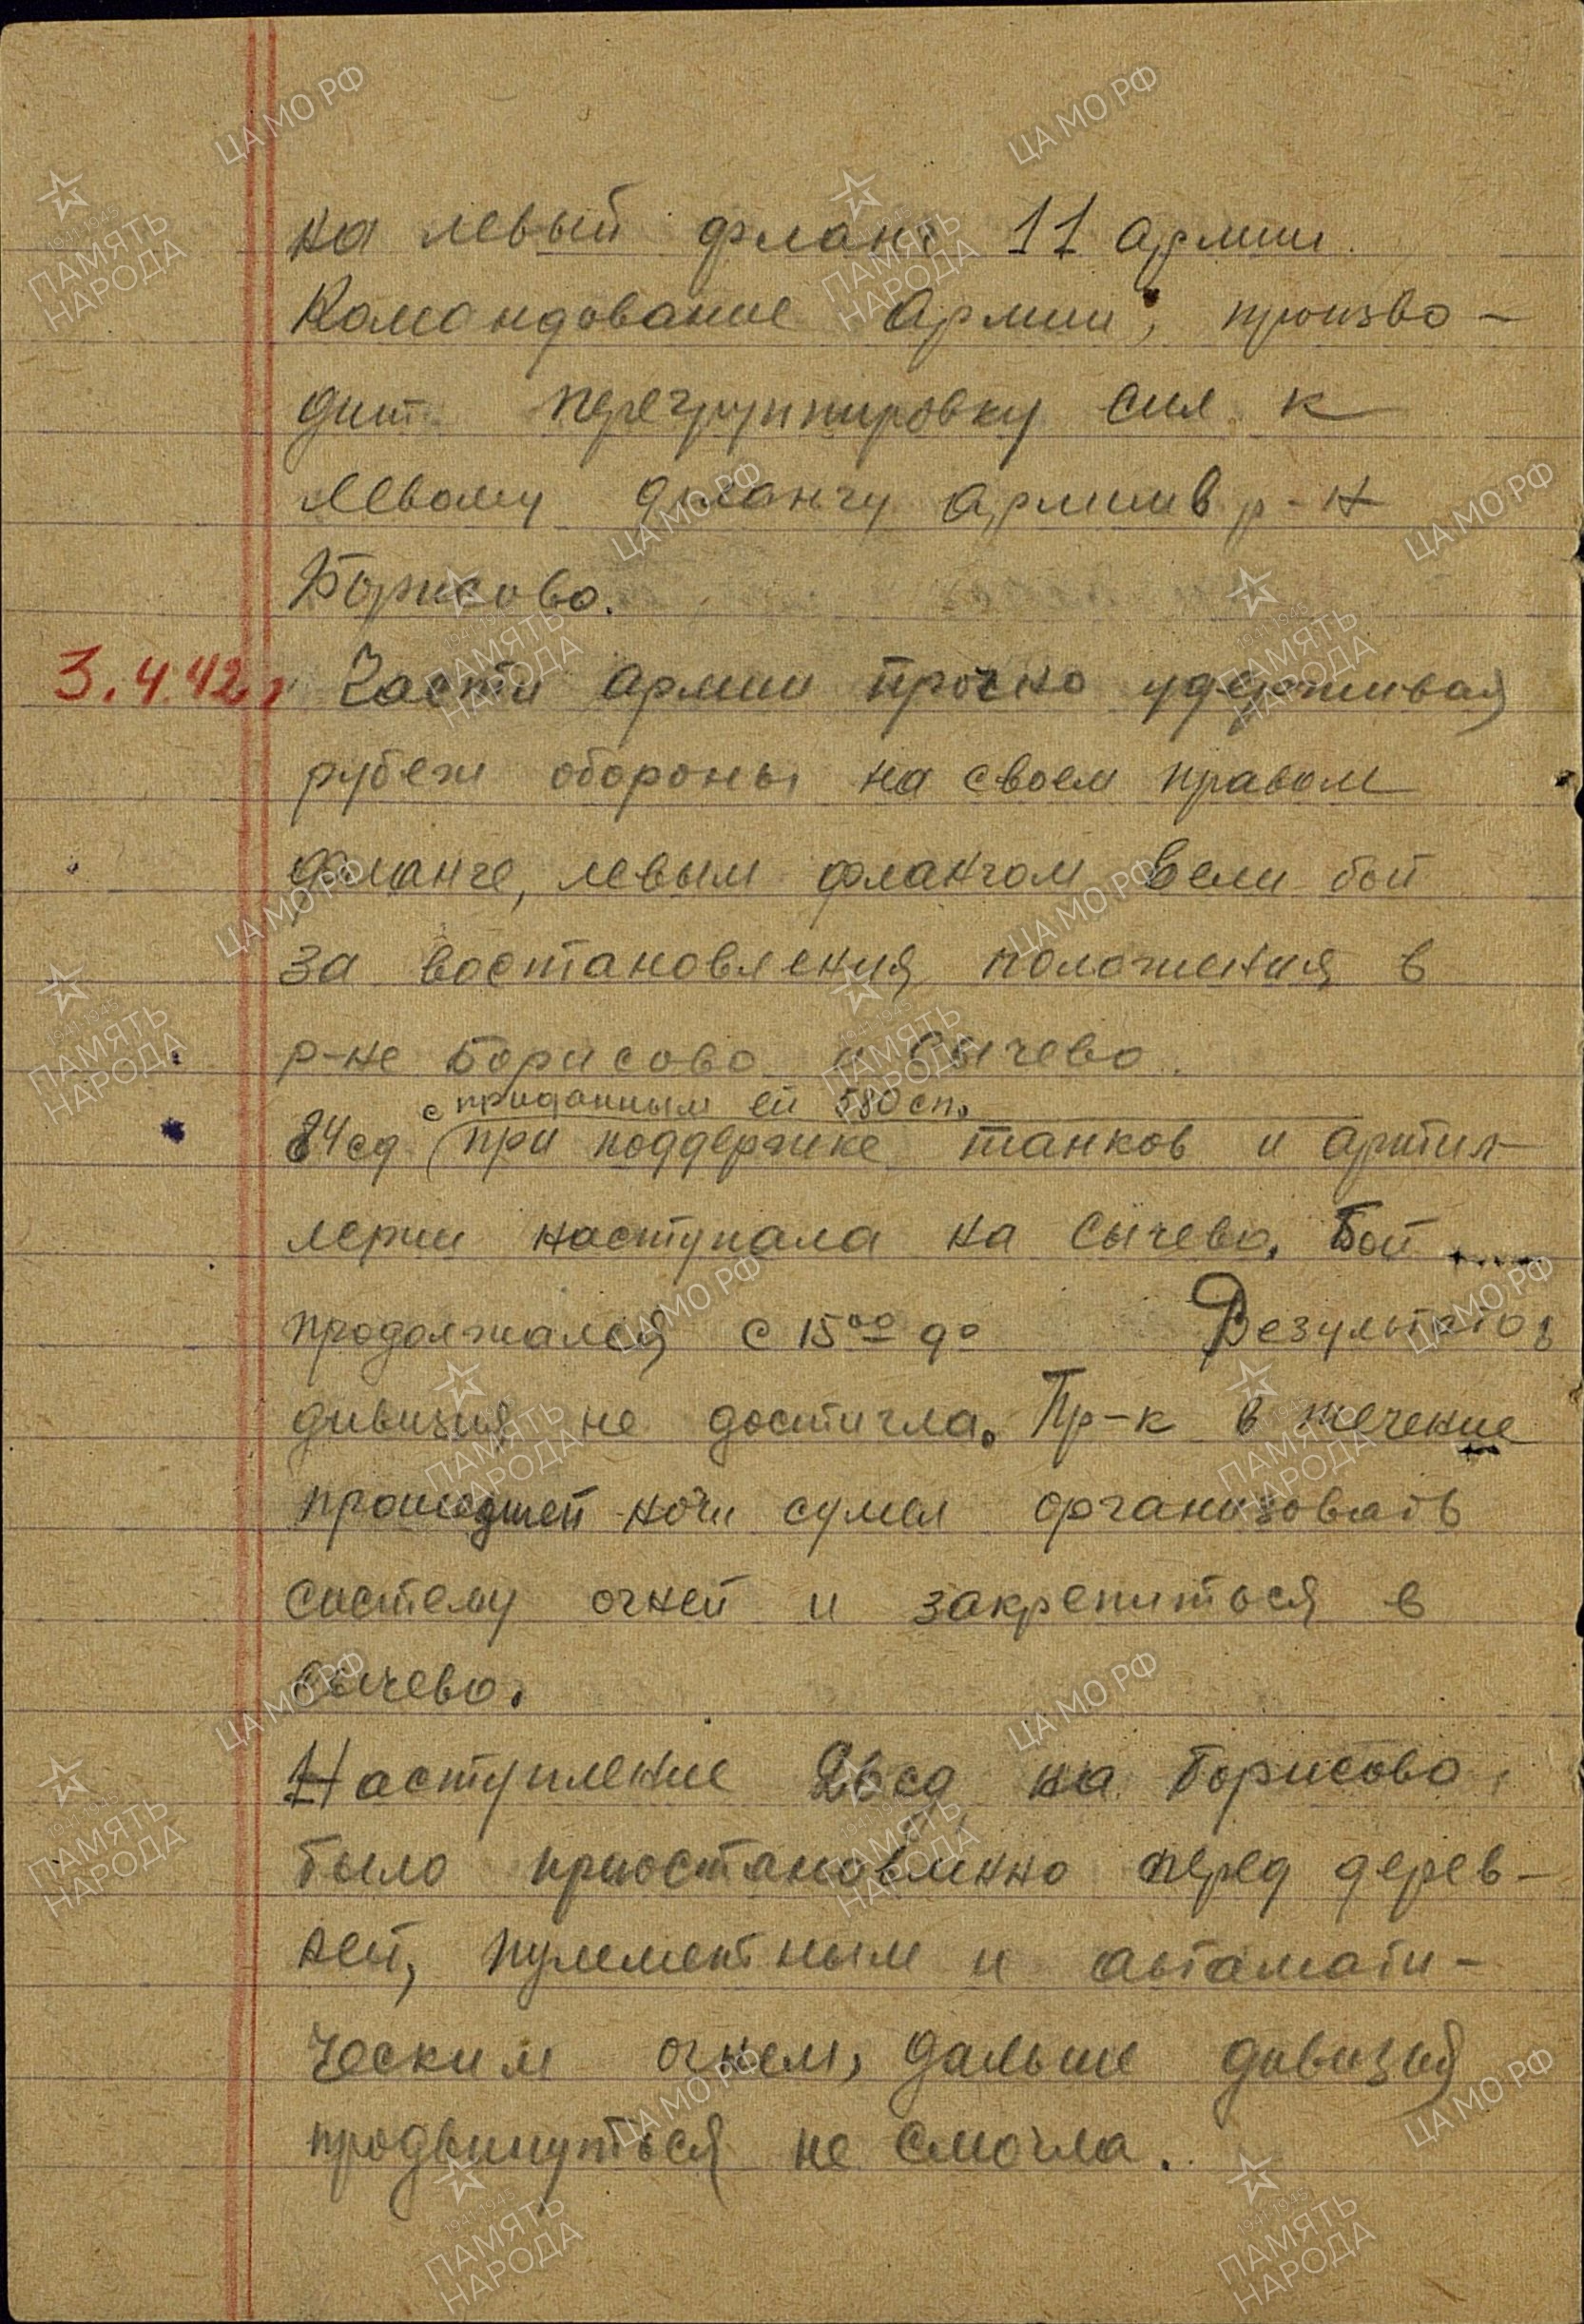 на левый фланг 11 армии.
Командование армии, произво-
дит перегруппировку сил к
левому флангу армии в р-н
Борисово.
3.4.42г. Части армии прочно удерживая
рубеж обороны на своем правом
фланге, левым флангом вели бой
за востановления положения в
р-не Борисово и Сычево.
с приданным ей 580 сп.
84 сд (при поддержке танков и артил-
лерии наступала на Сычево. Бой ....
продолжался с 15⁰⁰ до Результатов
дивизия не достигла. Пр-к в течение
прошедшей ночи сумел организовать
систему огней и закрепиться в
Сычево.
Наступление 26 сд на Борисово
было приостановленно перед дерев-
ней, пулеметным и автамати-
ческим огнем, дальше дивизия
продвинуться не смогла.